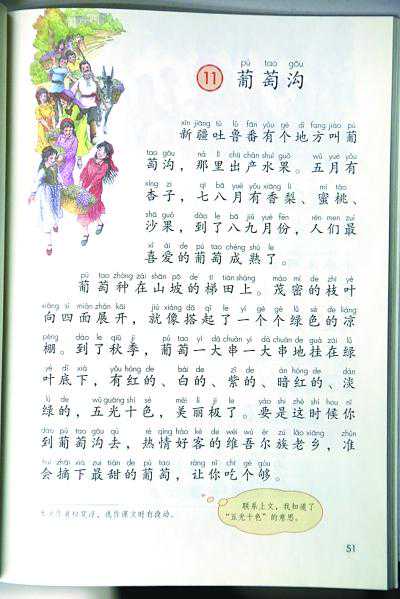 pú tao gōu
11 葡萄沟
xīn jiāng tǔ lǔ fān yǒu gè dì fang jiào pú
新疆吐鲁番有个地方叫葡
tao gōu nà lǐ chū chǎn shuǐ guǒ wǔ yuè yǒu
萄沟，那里出产水果。五月有
xìng zi qī bā yuè yǒu xiāng lí mì táo
杏子，七八月有香梨、蜜桃、
shā guǒ dào le bā jiǔ yuè fèn rén men zuì
沙果，到了八九月份，人们最
xǐ ài de pú tao chéng shú le
喜爱的葡萄成熟了。
pú tao zhòng zài shān pō de tī tián shàng mào mì de zhī yè
葡萄种在山坡的梯田上。茂密的枝叶
xiàng sì miàn zhǎn kāi jiù xiàng dā qǐ le yí gè gè lǜ sè de liáng
向四面展开，就像搭起了一个个绿色的凉
péng dào le qiū jì pú tao yí dà chuàn yí dà chuàn de guà zài lǜ
棚。到了秋季，葡萄一大串一大串地挂在绿
yè dǐ xià yǒu hóng de bái de zǐ de àn hóng de dàn
叶底下，有红的、白的、紫的、暗红的、淡
lǜ de wǔ guāng shí sè měi lì jí le yào shi zhè shí hou nǐ
绿的，五光十色，美丽极了。要是这时候你
dào pú tao gōu qù rè qíng hào kè de wéi wú ěr zú lǎo xiāng zhǔn
到葡萄沟去，热情好客的维吾尔族老乡，准
huì zhāi xià zuì tián de pú tao ràng nǐ chī gè gòu
会摘下最甜的葡萄，让你吃个够。
选作课文时有改动。
联系上文，我知道了
“五光十色”的意思。
51